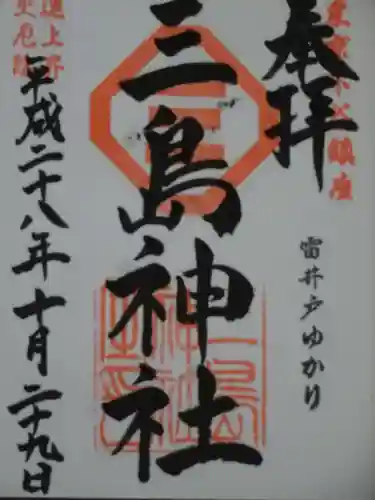 奉拝
雷井戸ゆかり
三島神社
平成二十八年十月二十九日